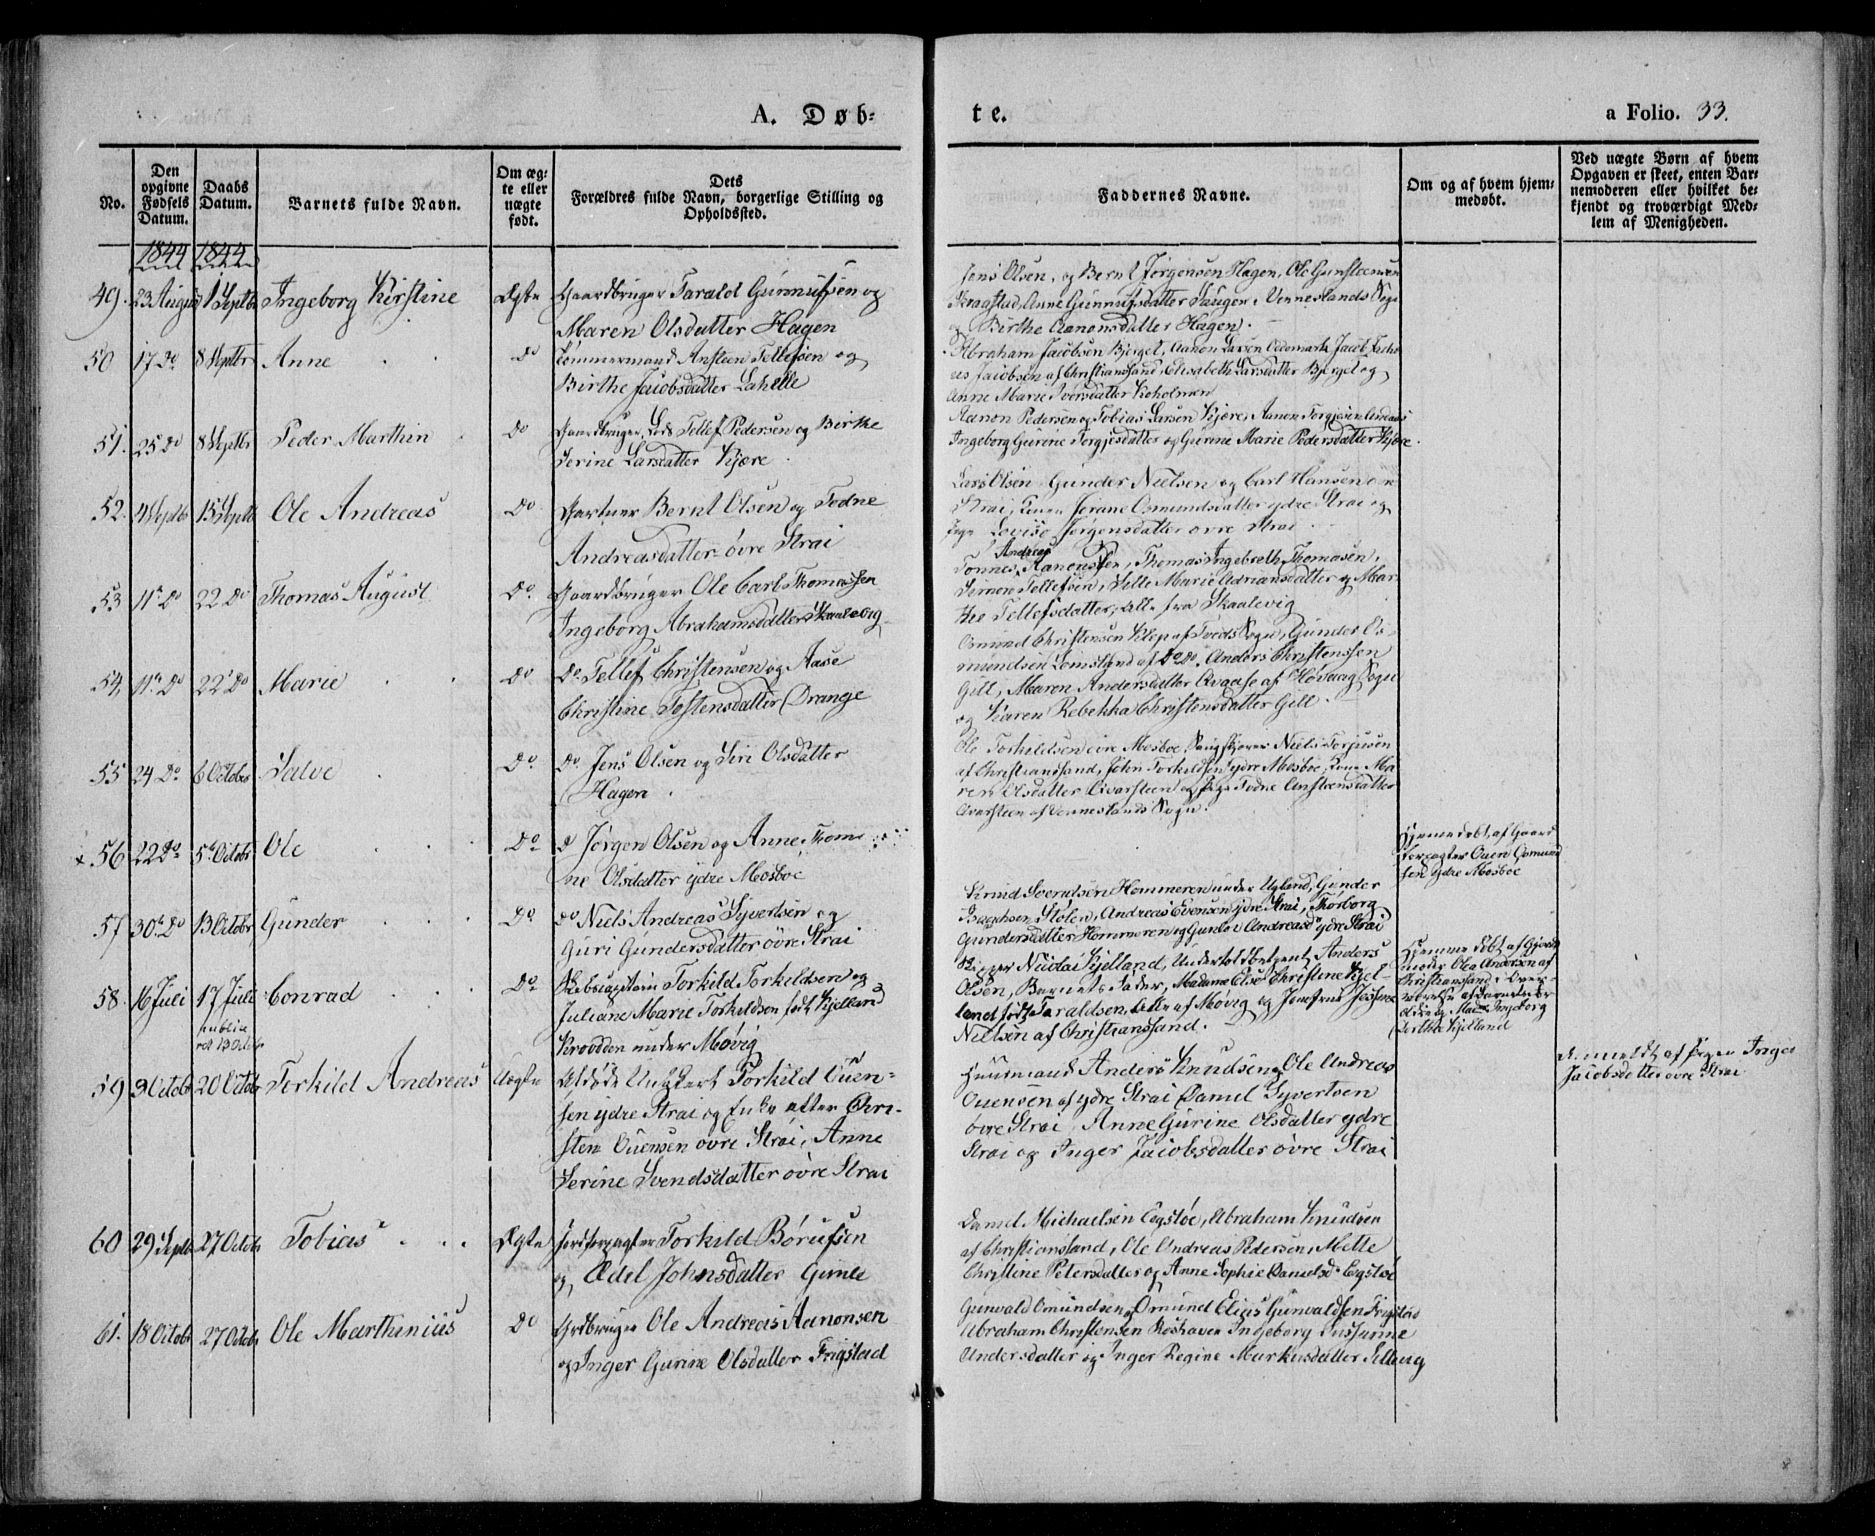 A. Døb=
te.
a Folio. 33.
No.
Den opgivne Fødsels Datum.
Daabs Datum.
Barnets fulde Navn.
Om æg= te eller uægte født.
Dets Forældres fulde Navn, borgerlige Stilling og Opholdssted.
Faddernes Navne.
Om og af hvem hjem= medøbt.
Ved uægte Børn af hvem Opgaven er skeet, enten Bar= nemoderen eller hvilket be= kjendt og troværdigt Med= lem af Menigheden.
1844 1844
49. 23 August 1 Septbr Ingeborg Kirstine Ægte Gaardbruger Tarald Gunnufsen og
Maren Olsdatter Hagen
Jens Olsen, og Bernt Jørgensen Hagen, Ole Gunsteensen
Kragstad, Anne Gunnufsdatter Haugen, Venneslands Sogn
og Birthe Aanonsdatter Hagen.
50 17 Do 8 Septbr Anne Do Tømmermand Ansteen Tellefsen og
Birthe Jacobsdatter Lahelle
Abraham Jacobsen Bjerget, Aanon Larsen Oddemark, Jacob
Jacobsen af Christiansand, Elisabeth Larsdatter Bjerget og
Anne Marie Iversdatter
51. 25 Do 8 Septbr Peder Marthin Do Gaardbruger Tellef Pedersen og Birthe
Serine Larsdatter Kjære.
Aanon Pedersen og Tobias Larsen Kjære, Aanon Torgjesen
Ingeborg Gurine Torgjesdatter og Gurine Marie Pedersdatter Kjære.
52. 4 Septbr 15 Septbr Ole Andreas Do Gartner Bernt Olsen og Todne
Andreasdatter øvre Strai
Lars Olsen Gunder Nielsen og Carl Hansen
Strai, Kone Jorane Osmundsdatter ydre Strai og
Pige Lovise Jørgensdatter øvre Strai.
53 11te Do 22 Do Thomas August Do. Gaardbruger Ole Carl Thomassen
Ingeborg Abrahamsdatter Skaalevig
Andreas
Tønnes Aanonsen, Thomas Ingebreth Thomasen,
Simon Tellefsen, Sille Marie Adriansdatter og Mar
the Tellefsdatter, alle fra Skaalevig
54, 11te Do 22 Do Marie Do Do Tellef Christensen og Aase
Christine Tostensdatter Drange
Osmund Christensen Klep af Tveds Sogn, Gunder Os=
mundsen Lomsland af Do Do, Anders Christenssen
Gill, Maren Andersdatter Aagase af Høvaag Sogn
og Karen Rebekka Christensdatter Gill.
55 24 Do 6 Octobr Salve Do Do Jens Olsen og Siri Olsdatter
Hagen.
Ole Torkildsen øvre Mosboe, Niels Torjusen
af Christiansand, John Torkildsen ydre Mosboe, Kone Ma
ren Olsdatter Qvarsteen og Pige Todne Ansteensdatter
Qvarsteen af Venneslands Sogn.
x 56 22 Do 5te Octobr Ole Do D Jørgen Olsen og Anne Thom
ine Olsdatter ydre Mosboe
Hjemmedøbt af Gaard
forpagter Ouen Osmund
sen ydre Mosboe
57 30te Do 13 Octobr Gunder Do Do Niels Andreas Syvertsen og
Guri Gundersdatter øvre Strai
Knud Svendsen Hommeren under Ugland, Gunder
Støten, Andreas Evensen ydre Strai, Thorborg
Gundersdatter Hommeren og Gunild Andreasdr ydre Strai
58 16 Juli 17 Juli Conrad Do Skibscaptain Torkild Torkildsen og
Juliane Marie Torkildsen født Kjelland
Krodden under Møvig
public
ret 13 Octobr
Nicolai Kjelland, Undertoldbetjent Anders
Olsen, Barnets Fader, Madame Else Christine Kjel=
land født Taraldsen, Alle af Møvig og Jomfrue Josine
Nielsen af Christianssand.
Hjemmedøbt af Gjord
moder Olea Andersen af
Christianssand i Over
værelse af Barnets For
ældre og Mad. Ingeborg
Kjelland
59 3 Octobr 20 Octobr Torkild Andreas Uægte Afdøde Ungkarl Torkild Ouen=
sen ydre Strai og Enke efter Chri=
sten Ouensen øvre Strai, Anne
Serine Svendsdatter øvre Strai
Huusmand Anders Knudsen, Ole Andreas
Ouensen af ydre Strai Daniel Syvertsen
øvre Strai, Anne Gurine Olsdatter ydre
Strai og Inger Jacobsdatter øvre Strai
Anmeldt af Pigen Inger
Jacobsdatter øvre Strai
60 29 Septbr 27 Octobr Tobias Ægte Jordforpagter Torkild Børufsen
og Ædel Johnsdatter Gimle
Daniel Michaelsen Eegstøe, Abraham Knudsen
af Christiansand, Ole Andreas Pedersen, Mette
Christine Petersdatter og Anne Sophie Danielsdr Eegstøe
61. 18 Octobr 27 Octobr Ole Marthinius Do Grdbruger Ole Andreas Aanonsen
og Inger Gurine Olsdatter Frigstad
Gunvald Omundsen, Omund Elias Gunvaldsen Frigstad
Abraham Christensen Roshaven Ingeborg Susanne
Andersdatter og Inger Regine Markusdatter